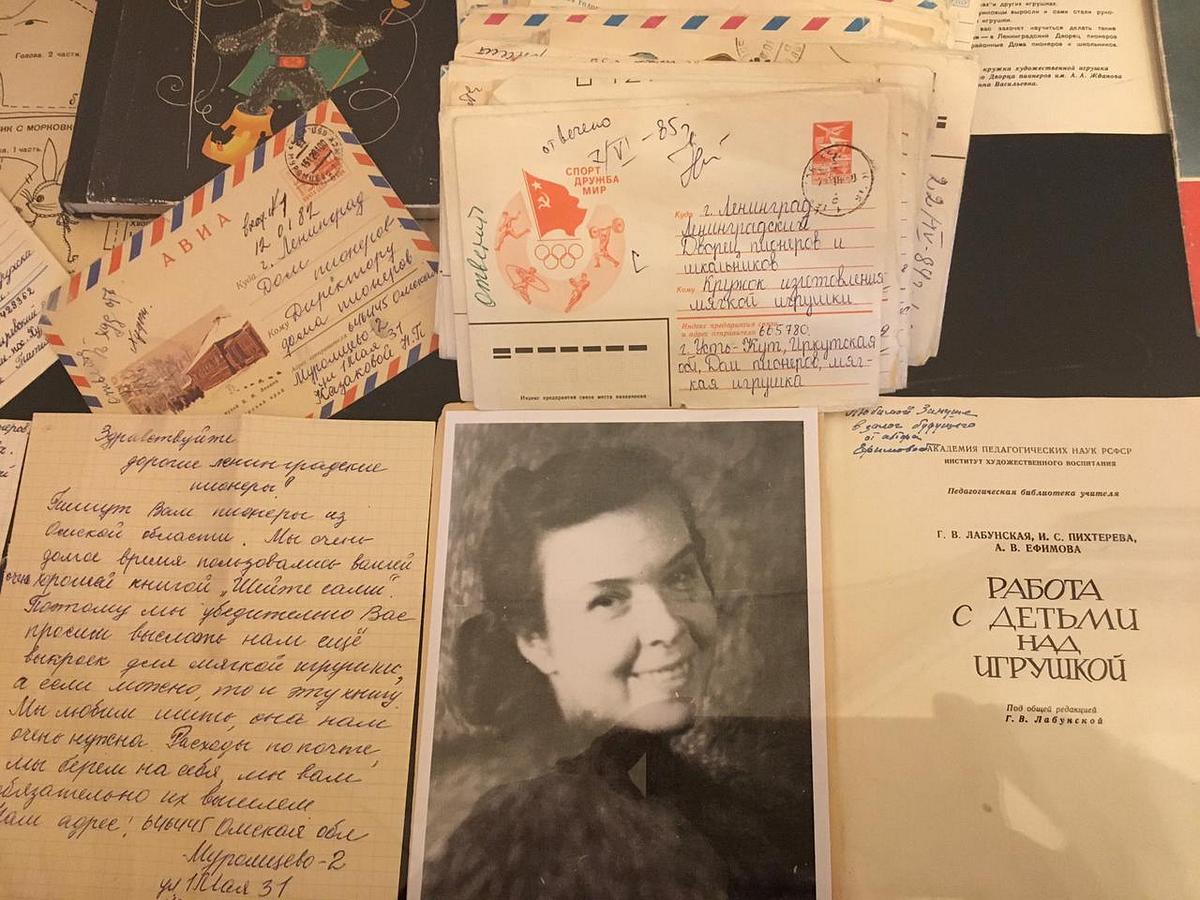 Голова. 2 части.
ИК С МОРКОВК
1 часть.
и других игрушках.
выросли и сами стали руко-
игрушки.
вас захочет научиться делать такие
— в Ленинградский Дворец пионеров
районные Дома пионеров и школьников.
кружка художественной игрушки
Дворца пионеров им. А. А. Жданова
на Васильевна.
АВИА
вход. №1
12 01 82
Куда г. Ленинград
Дом пионеров
Кому Директору
дома пионеров
646445 Омская
Муромцево-2
ул 1 Мая 31
Казаковой Н.П
отвечено
I/VI - 85 г
ответит
СПОРТ
ДРУЖБА
МИР
Куда г. Ленинград,
Ленинградский
Дворец пионеров и
школьников
Кому Кружок изготовления
мягкой игрушки
Индекс предприятия связи
и адрес отправителя 665780.
г. Усть-Кут, Иркутская
обл, Дом пионеров, мяг-
кая игрушка
Индекс предприятия связи места назначения
22/IV-84г.
Здравствуйте
дорогие ленинградские
пионеры!
Пишут Вам пионеры из
Омской области. Мы очень
долгое время пользовались вашей
очень хорошей книгой „Шейте сами".
Поэтому мы убедительно Вас
просим выслать нам ещё
выкроек для мягкой игрушки,
а если можно, то и эту книгу.
Мы любим шить, она нам
очень нужна. Расходы по почте,
мы берем на себя, мы вам
обязательно их вышлем
Наш адрес! 646445 Омская обл
Муромцево-2
ул 1 Мая 31
Любимой Зинуше
в залог будущего
от автора
Ефимовой
АКАДЕМИЯ ПЕДАГОГИЧЕСКИХ НАУК РСФСР
ИНСТИТУТ ХУДОЖЕСТВЕННОГО ВОСПИТАНИЯ
Педагогическая библиотека учителя
Г. В. ЛАБУНСКАЯ, И. С. ПИХТЕРЕВА,
А. В. ЕФИМОВА
РАБОТА
С ДЕТЬМИ
НАД
ИГРУШКОЙ
Под общей редакцией
Г. В. Лабунской